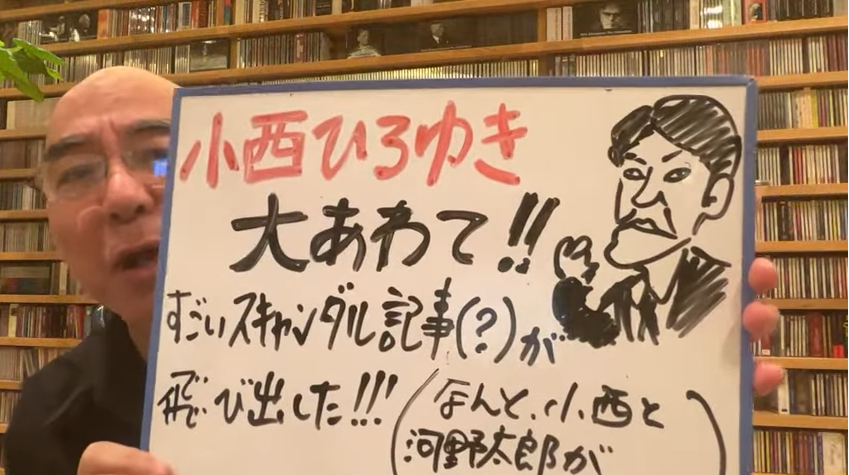 小西ひろゆき
大あわて!!
すごいスキャンダル記事(?)が
飛び出した!!!
(なんと、小西と
河野太郎が)